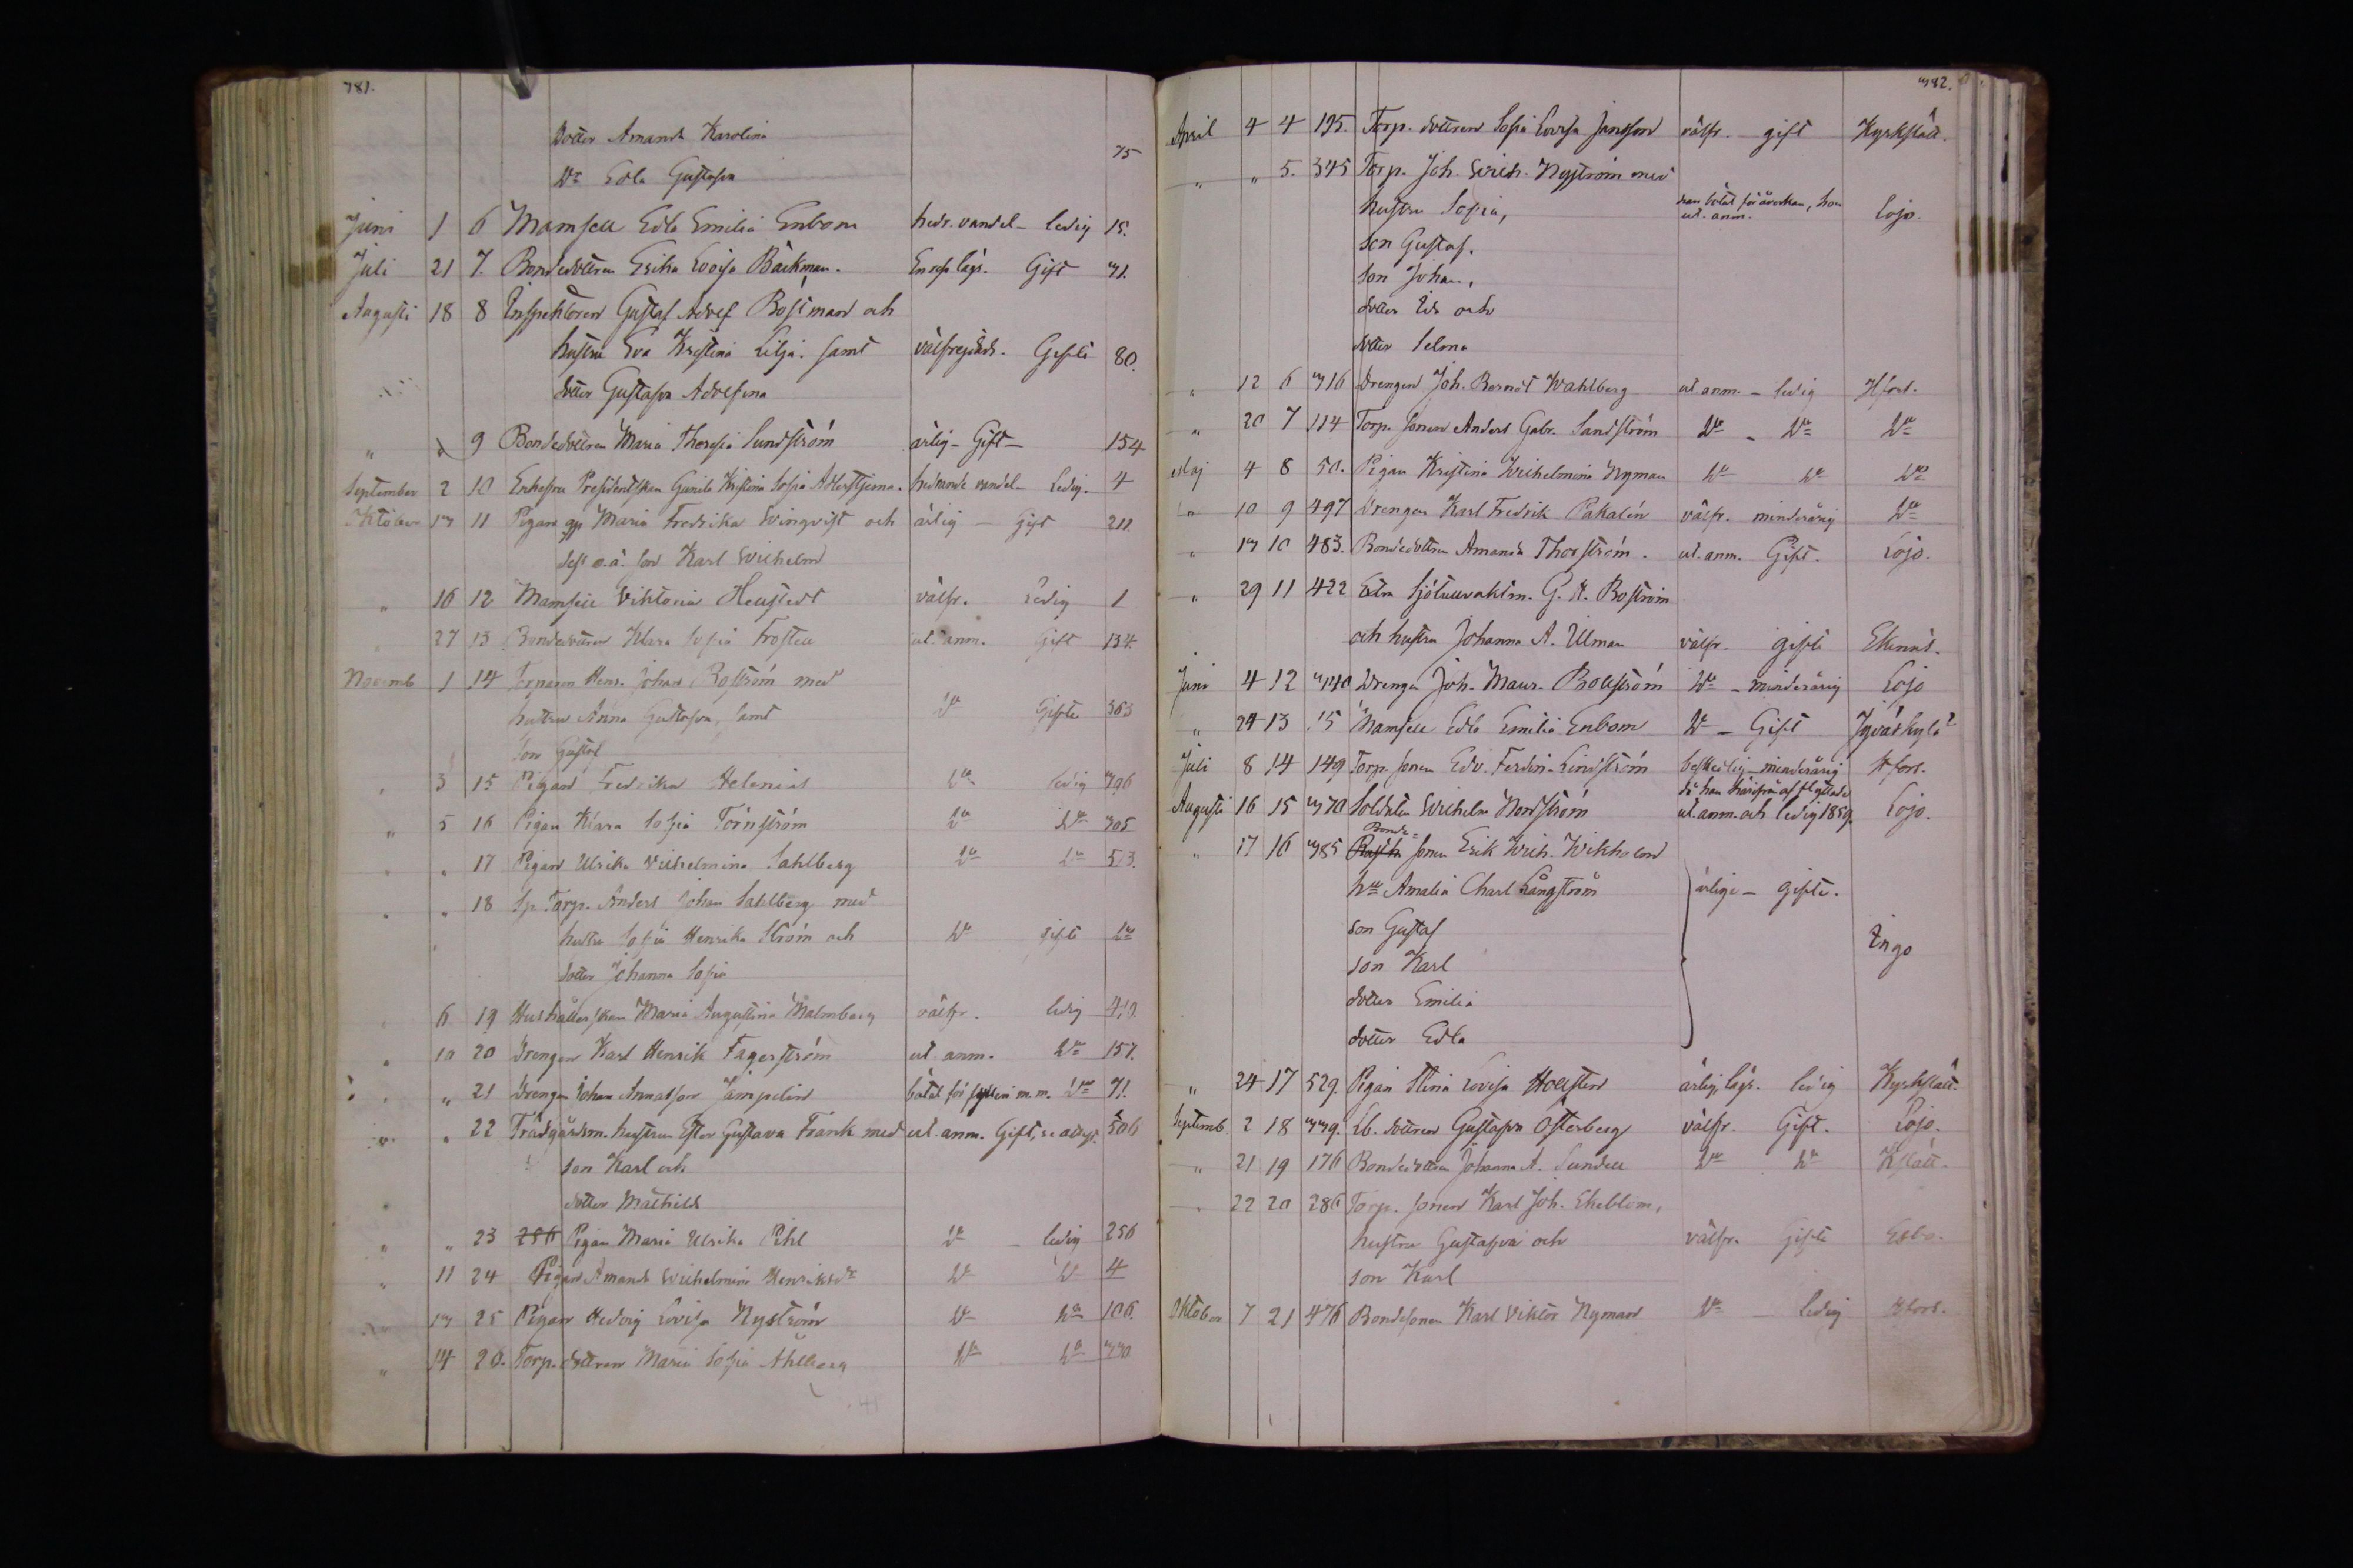 781.
Dotter Amanda Karolina
Do Edla Gustafva 75
Juni 1 6 Mamsell Edla Emilia Enbom hedr. vandel - ledig 15.
Juli 21 7. Bondedottren Erika Lovisa Bäckman. Ensk. läs. Gift 71.
Augusti 18 8 Inspektoren Gustaf Adolf Boström och
hustru Eva Kristina Lilja. samt välfrejdade. Gifte 80.
dotter Gustafva Adolfina
" " 9 Bondedottren Maria Theresia Sundström ärlig - Gift - 154
September 2 10 Enkefru Presidentskan Gunila Kristina Sofia Adlerstjerna. hedrande vandel - Ledig. 4
Oktober 7 11 Pigan Maria Fredrika Winqvist och ärlig - gift 211.
o.ä. son Karl Wilhelm
" 16 12 Mamsell Viktoria Hellstedt välfr. Ledig 1
" 27 13 Bondedottren Klara Sofia Frostell ut. anm. Gift 134.
Novemb 1 14 Torparen Henr. Johan Boström med
hustru Anna Gustafva, samt Do Gifte 363
son Gustaf
" 3 15 Pigan Fredrika Helenius Do ledig 796
" 5 16 Pigan Klara Sofia Törnström Do Do 705
" " 17 Pigan Ulrika Vilhelmina Sahlberg Do Do 513.
" " 18 Sp. Torp. Anders Johan Sahlberg med
hustru Sofia Henrika Ström och Do gifte Do
dotter Johanna Sofia
" 6 19 Hushållerskan Maria Augustina Malmberg välfr. ledig 410.
" 10 20 Drengen Karl Henrik Fagerström ut. anm. Do 157.
" " 21 Drengen Johan Annasson Jämpelin bötat för fylleri m.m. Do 71.
" " 22 Trädgårdsm. hustrun Ester Gustava Frank med ut. anm. Gift, se attest. 506
son Karl och
dotter Mathilda
" " 23 256 Pigan Maria Ulrika Pihl Do - ledig 256
" 11 24 Pigan Amanda Wilhelmina Henriksdr Do Do 4
" 17 25 Pigan Hedvig Lovisa Nyström Do Do 106.
" 14 26. Torp. dottren Maria Sofia Ahlberg Do Do 770
782.
April 4 4 195. Torp. dottren Sofia Lovisa Jansson välfr. - gift Kyrkslätt.
" " 5. 345 Torp. Joh. Wilh. Nyström med
hustru Sofia, han bötat för åverkan, hon ut. anm. Lojo.
son Gustaf.
son Johan,
dotter Ida och
dotter Selma
" 12 6 716 Drengen Joh. Berndt Wahlberg ut. anm. - ledig Hfors.
" 20 7 114 Torp. sonen Anders Gabr. Sandström Do - Do Do
Maj 4 8 50. Pigan Kristina Wilhelmina Nyman Do Do Do
" 10 9 497 Drengen Karl Fredrik Pakalén välfr. minderårig Do
" 17 10 483. Bondedottren Amanda Thorström. ut. anm. Gift. Lojo.
" 29 11 422 Extra Sjötullvaktm. G. A. Boström
och hustru Johanna A. Ulman välfr. gifte Ekenäs.
Juni 4 12 740 Drengen Joh. Maur. Bollström Do - minderårig Lojo
" 24 13 15 Mamsell Edla Emilia Enbom Do - Gift Jyväskylä
Juli 8 14 149 Torp. sonen Edv. Ferdin. Lindström beskedlig - minderårig Hfors.
Augusti 16 15 770 Soldaten Wilhelm Nordström då han härifrån afflyttade ut. anm. och ledig 1859. Lojo.
" 17 16 785 Bonde- sonen Erik Wilh. Wikholm
Hu Amalia Charl Långström ärliga - gifte.
son Gustaf
son Karl Ingo
dotter Emilia
dotter Edla
" 24 17 529. Pigan Stina Lovisa Hollsten ärlig, läs. ledig Kyrkslätt.
Septemb. 2 18 779. Lb. dottren Gustafva Österberg välfr. Gift. Lojo.
" 21 19 176 Bondedottren Johanna A. Sundell Do Do Kslätt.
" 22 20 286 Torp. sonen Karl Joh. Ekeblom,
hustru Gustafva och välfr. Gifte Esbo.
son Karl
Oktober 7 21 476 Bondesonen Karl Viktor Nyman Do - ledig Hfors.